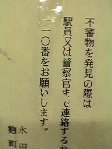 不審物を発見の際は
駅員又は警察官まで連絡するか
一一〇番をお願いします。
永田
麹町